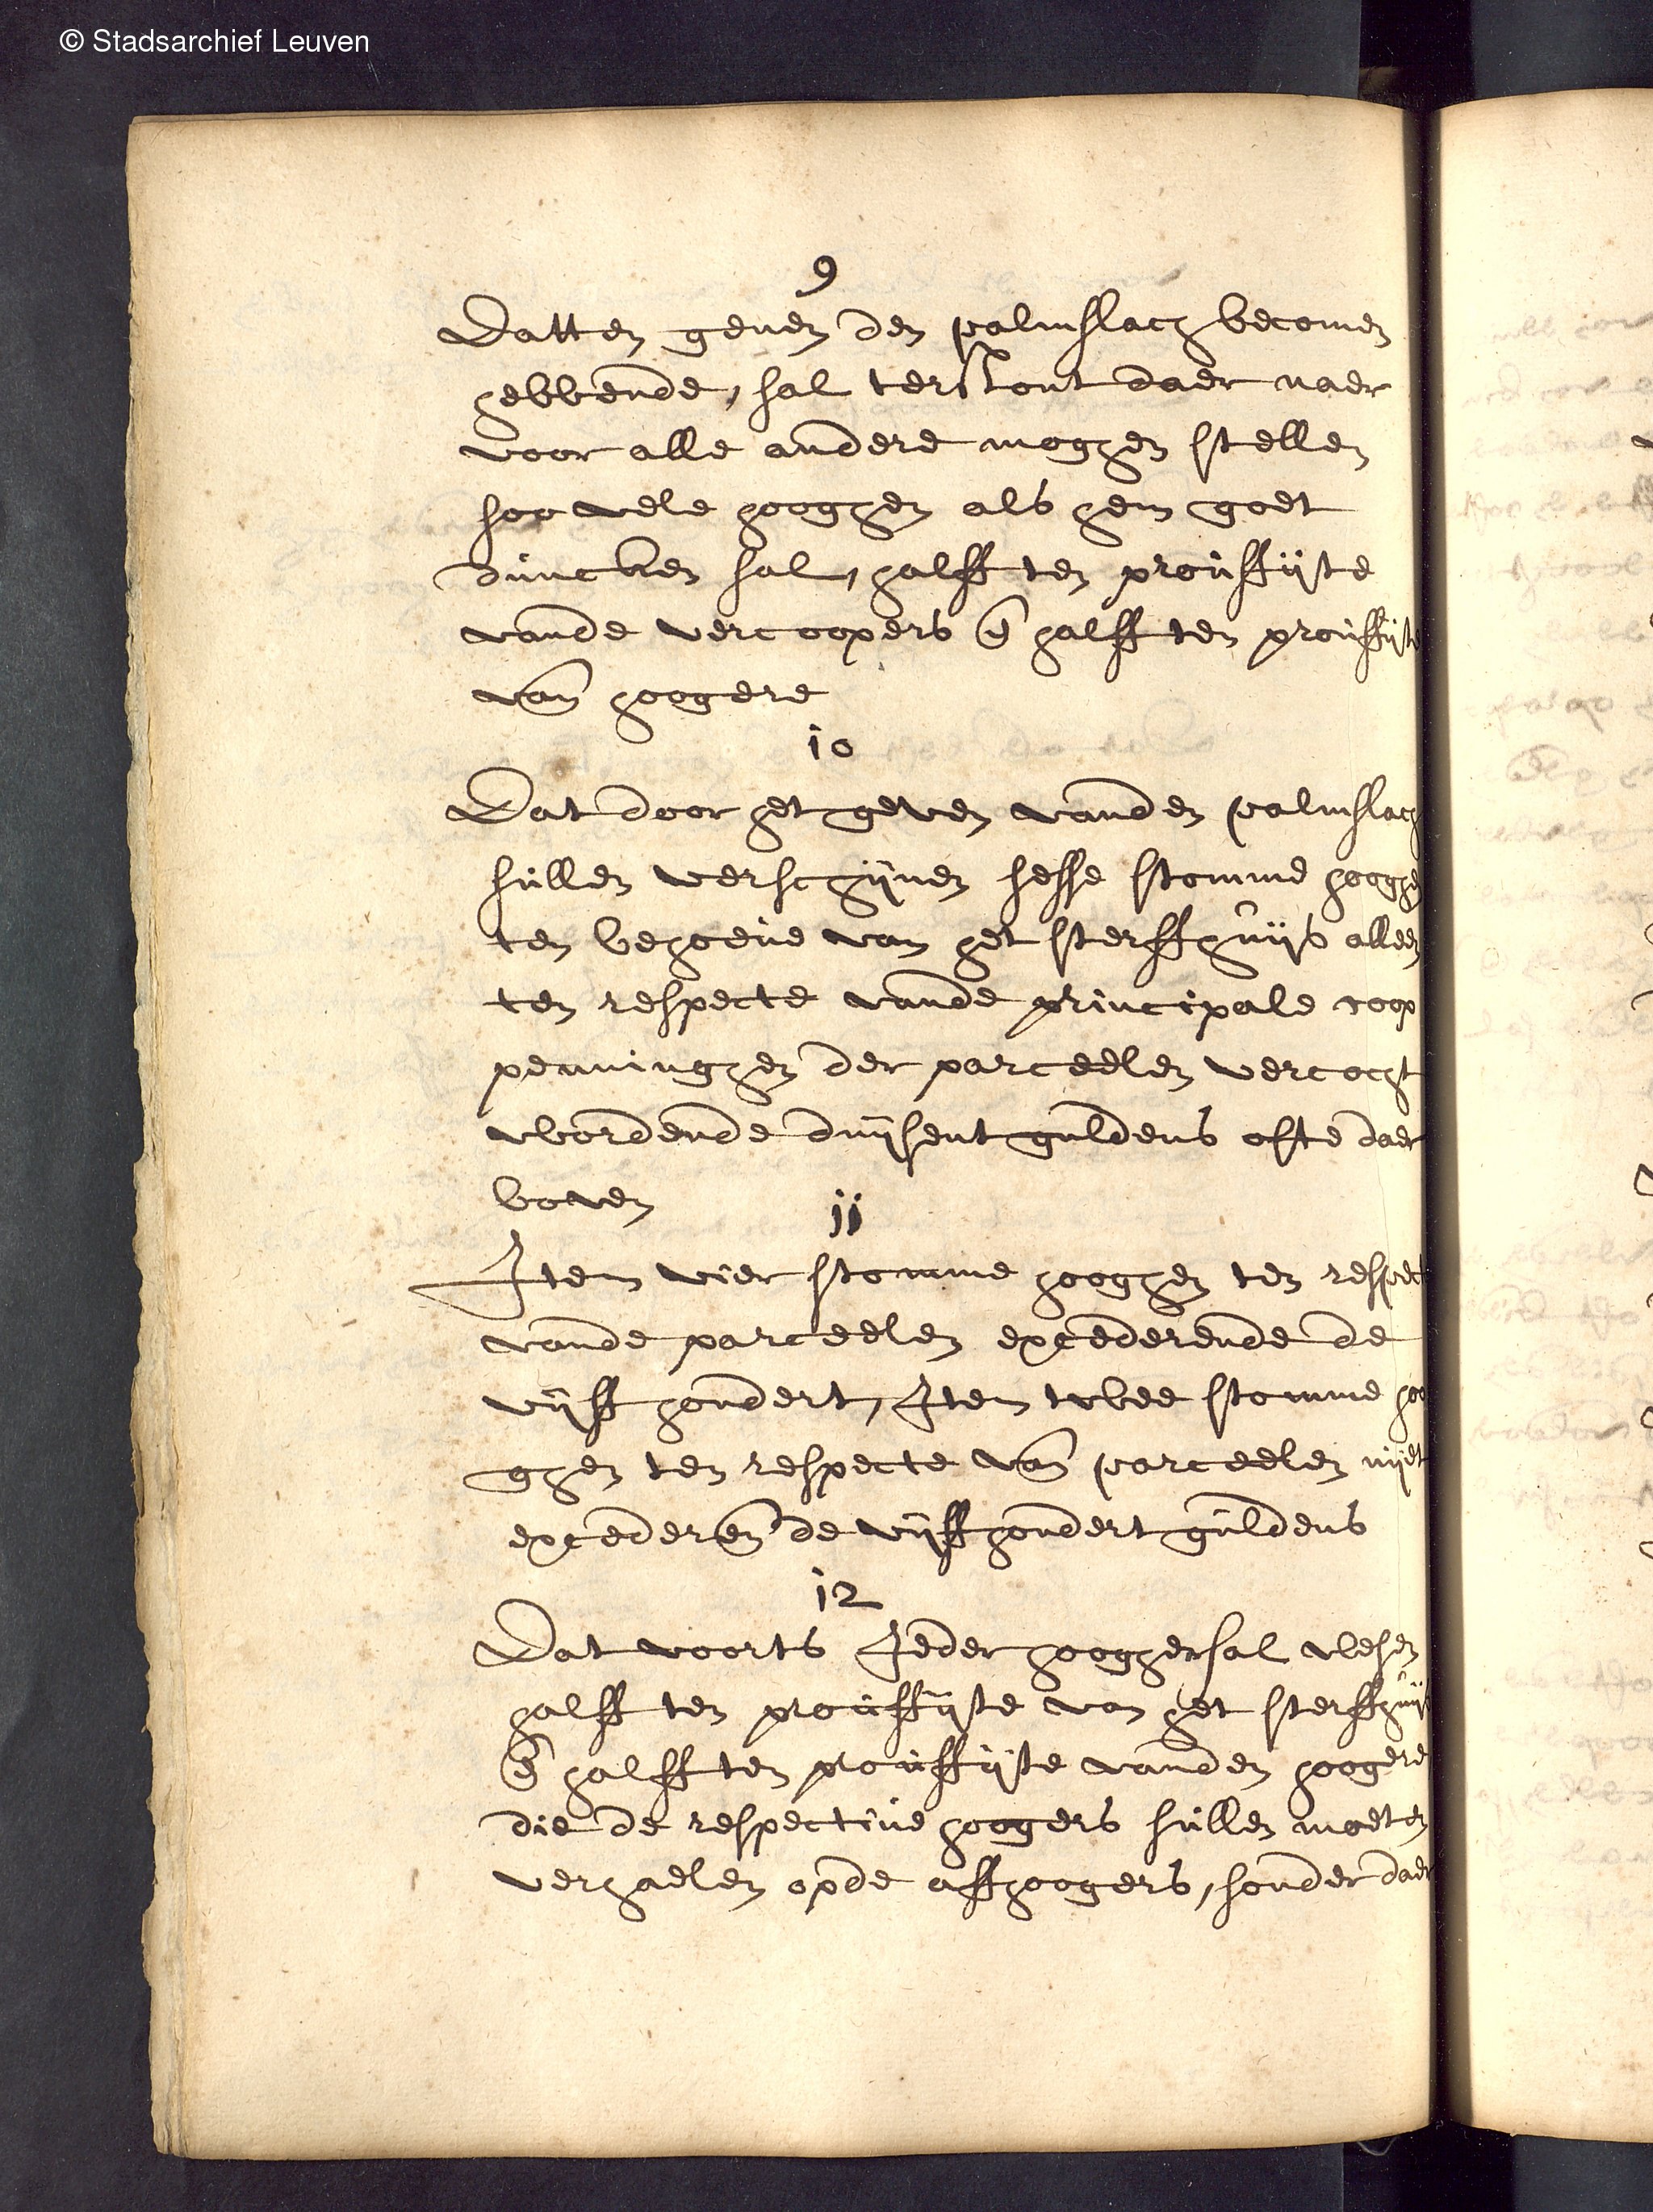 © Stadsarchief Leuven
9
Datten genen den palmslach becomen
hebbende, sal terstont daer naer
voor alle andere moghen stellen
soo vele hooghen als hem goet
duncken sal, halff ten prouffijte
vande vercoopers en̄ halff ten prouffijte
van hoogere
io
Dat door het geven vanden palmslach
sullen verschijnen sesse stomme hooghen
ten behoeve van het sterffhuijs alleen
ten respecte vande principale coop
penninghen der parceelen vercocht
wordende duijsent guldens ofte daer
boven
ii
Item vier stomme hooghen ten respect
vande parceelen excederende de
vijff hondert, Item twee stomme hoo
ghen ten respecte van parceelen nijet
excederen de vijffhondert guldens
i2
Dat voorts Jeder hoogher sal wesen
halff ten prouffijte van het sterffhuijs
en̄ halff ten prouffijte vanden hoogere
die de respective hoogers sullen moeten
verhaelen opde affhoogers, sonder daer